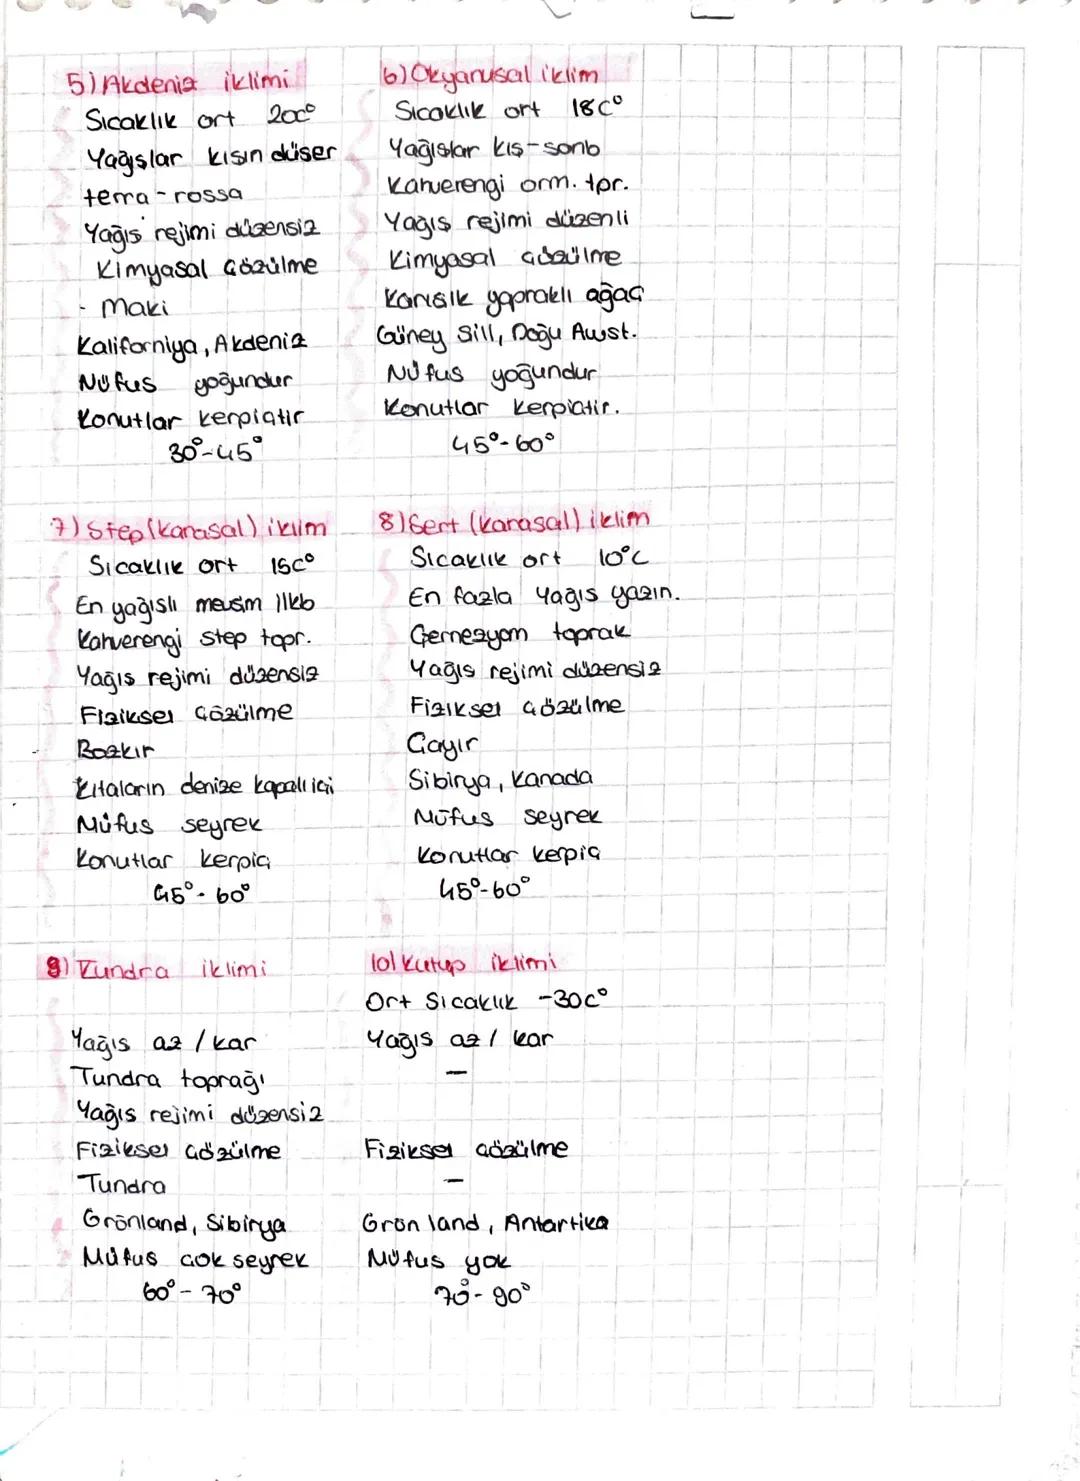 5) Akdeniz iklimi
Sıcaklık ort 20C°
Yağışlar kışın düşer
terra-rossa
Yağış rejimi düzensiz
Kimyasal çözülme
- Maki
Kaliforniya, Akdeniz
Nüfus yoğundur
Konutlar kerpiçtir
30°-45°
6) Okyanusal iklim
Sıcaklık ort 18C°
Yağışlar kış-sonb
Kahverengi orm. tpr.
Yağış rejimi düzenli
Kimyasal çözülme
Karışık yapraklı ağaç
Güney Şili, Doğu Avust.
Nüfus yoğundur
Konutlar kerpiçtir.
45°-60°
7) Step (karasal) iklim
Sıcaklık ort 15C°
En yağışlı mevsim ilkb
Kahverengi step topr.
Yağış rejimi düzensiz
Fiziksel çözülme
Bozkır
Kıtaların denize kapalı içi
Nüfus seyrek
Konutlar kerpiç
45°-60°
8) Sert (karasal) iklim
Sıcaklık ort 10°C
En fazla yağış yazın.
Çernezyom toprak
Yağış rejimi düzensiz
Fiziksel çözülme
Çayır
Sibirya, Kanada
Nüfus seyrek
Konutlar kerpiç
45°-60°
9) Tundra iklimi
Yağış az / kar
Tundra toprağı
Yağış rejimi düzensiz
Fiziksel çözülme
Tundra
Grönland, Sibirya
Nüfus çok seyrek
60°-70°
10) Kutup iklimi
Ort Sıcaklık -30C°
Yağış az / kar
-
Fiziksel çözülme
-
Grönland, Antartika
Nüfus yok
70°-90°